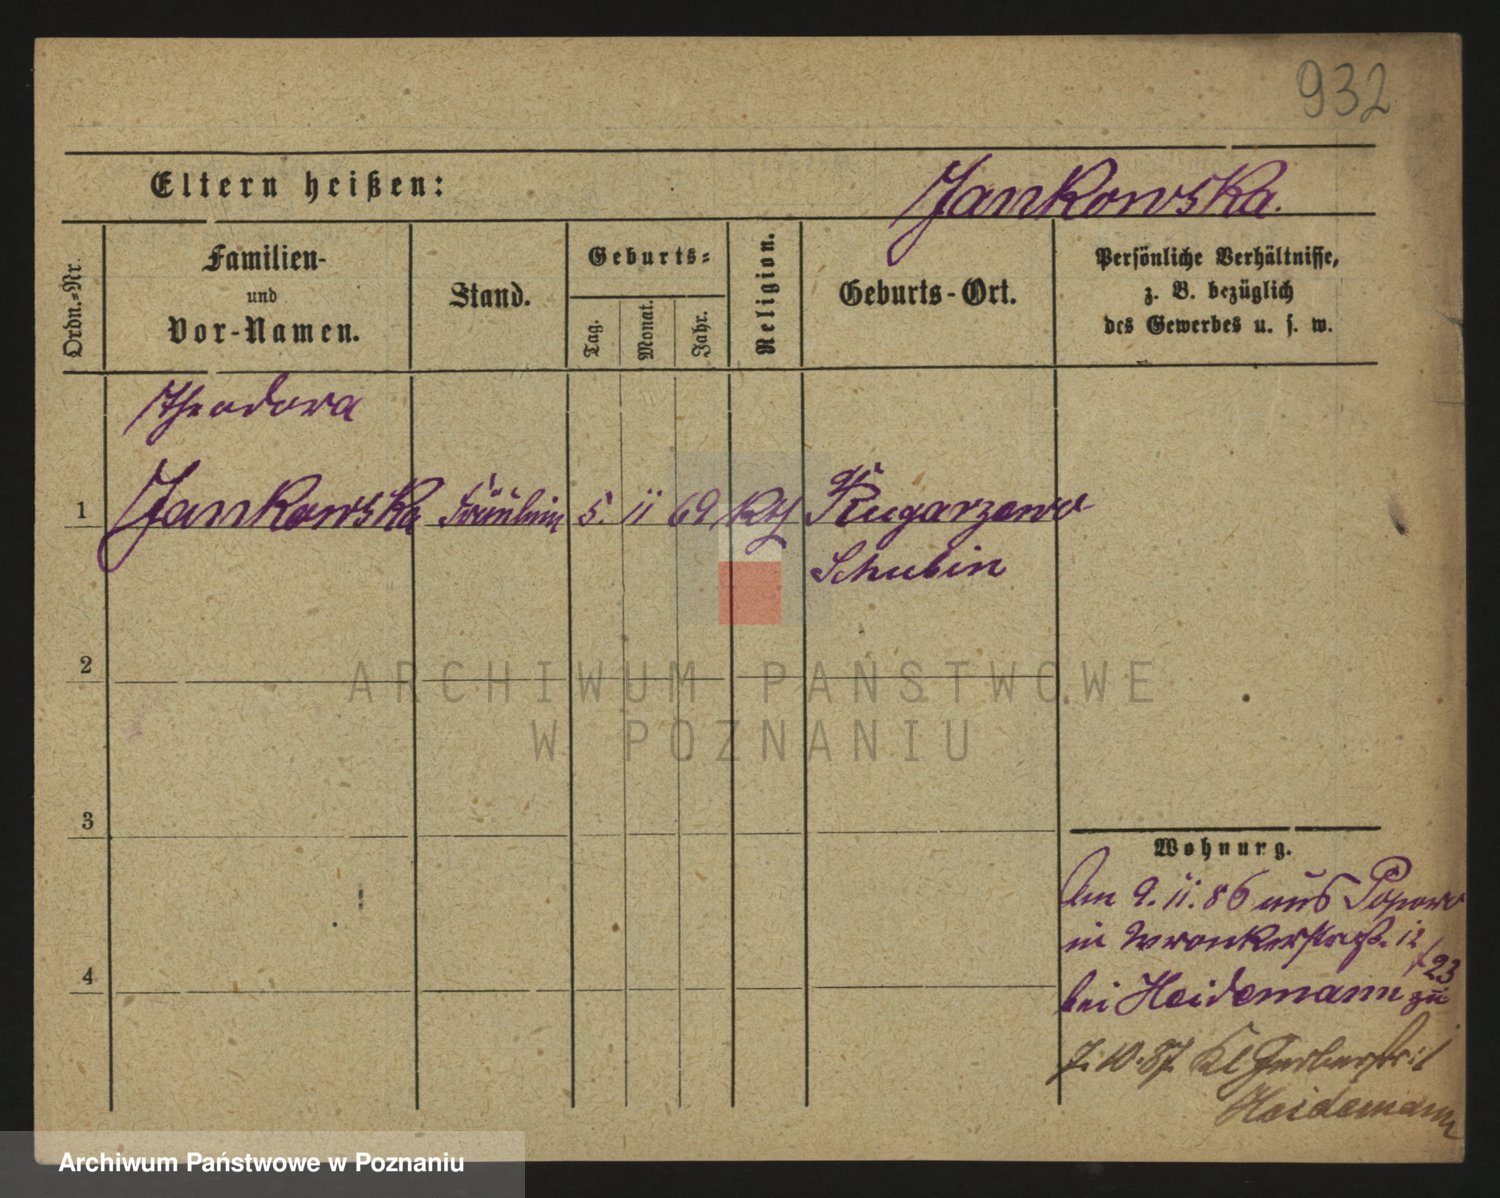 932
Eltern heißen:
Jankowska.
Ordn.-Nr.
Familien-
und
Vor-Namen.
Stand.
Geburts-
Tag.
Monat.
Jahr.
Religion.
Geburts-Ort.
Persönliche Verhältnisse,
z. B. bezüglich
des Gewerbes u. s. w.
Theodora
1 Jankowska Fräulein 5. 11 69 Kth
Schubin
2
3
4
ARCHIWUM PAŃSTWOWE
W POZNANIU
Wohnung.
Am 9. 11. 86 aus Popowo
in Wronkerstraß. 12
/23
bei Heidemann zu
7. 10. 87 Kl Gerberstr:
Heidemann
Archiwum Państwowe w Poznaniu